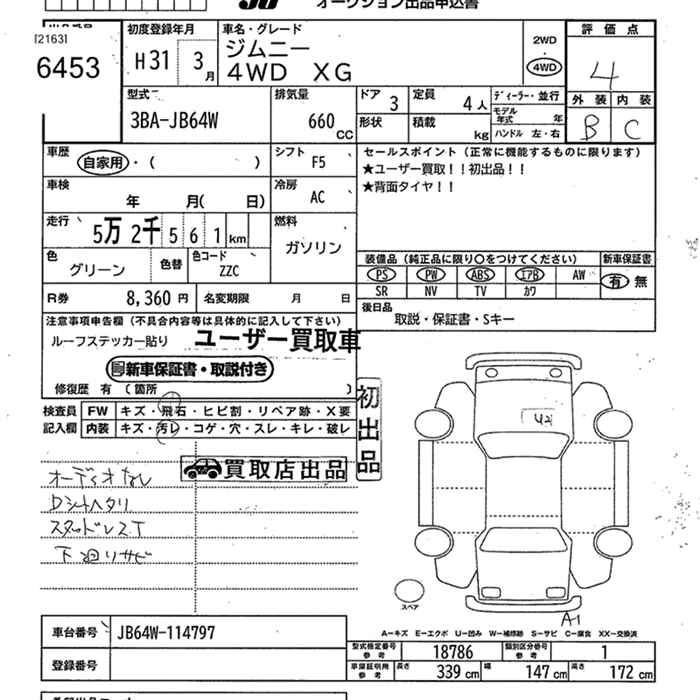 オークション出品申込書
[2163]
6453
初度登録年月
H31 3月
車名・グレード
ジムニー
4WD XG
2WD
4WD
評価点
4
外装 内装
B C
型式
3BA-JB64W
排気量
660 CC
ドア 3
形状
定員 4人
積載 kg
ディーラー・並行
モデル年式 年
ハンドル 左・右
車歴 自家用・( )
シフト F5
車検 年 月( 日)
冷房 AC
走行 5万2千561km
燃料 ガソリン
色 グリーン
色替
色コード ZZC
R券 8,360円
名変期限 月 日
セールスポイント(正常に機能するものに限ります)
★ユーザー買取!!初出品!!
★背面タイヤ!!
装備品(純正品に限り○をつけてください)
新車保証書
PS PW ABS エアB AW
有 無
SR NV TV カワ
後日品
取説・保証書・Sキー
注意事項申告欄(不具合内容等は具体的に記入して下さい)
ルーフステッカー貼り ユーザー買取車
新車保証書・取説付き
修復歴 有(箇所 )
検査員記入欄
FW キズ・飛石・ヒビ割・リペア跡・X要
内装 キズ・汚レ・コゲ・穴・スレ・キレ・破レ
初出品
買取店出品
オーディオなし
Dシートヘタリ
スタッドレスT
下廻りサビ
スペア
A1
A−キズ E−エクボ U−凹み W−補修跡 S−サビ C−腐食 XX−交換済
車台番号 JB64W-114797
登録番号
型式指定番号参考 18786
類別区分番号参考 1
車庫証明用参考 長さ 339cm 幅 147cm 高さ 172cm